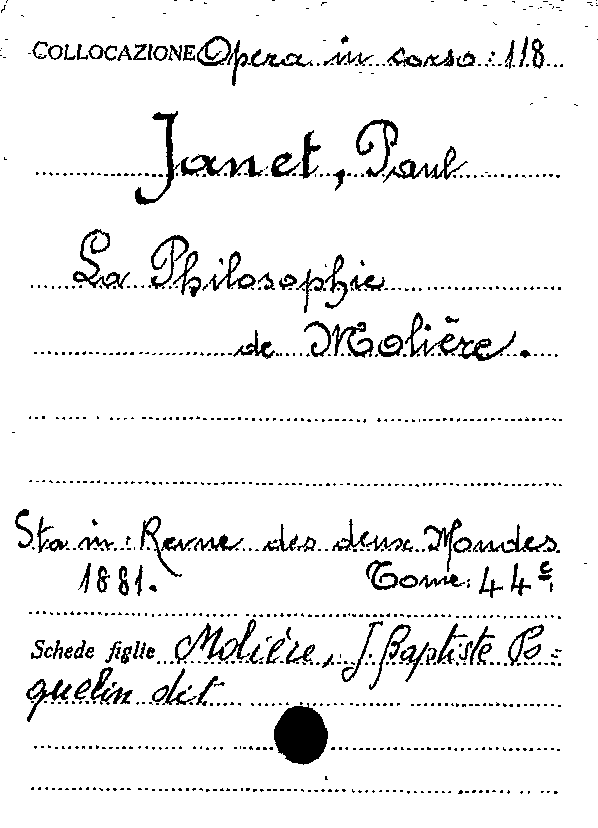 COLLOCAZIONE Opera in corso: 118
Janet, Paul
La Philosophie
de Molière.
Sta in: Revue des deux Mondes
1881. Tome: 44e.
Schede figlie Molière, J. Baptiste Po=
quelin dit